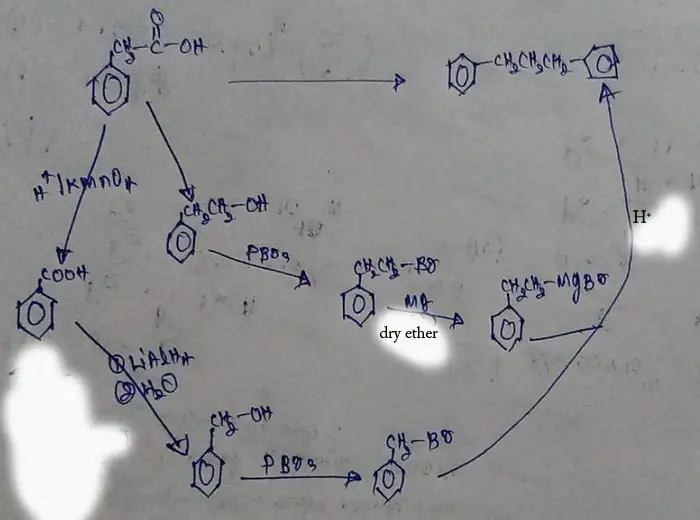 O
CH2-C-OH
-CH2CH2CH2-
H+/KMnO4
CH2CH2-OH
PBr3
H+
COOH
CH2CH2-Br
Mg
dry ether
CH2CH2-MgBr
① LiAlH4
② H2O
CH2-OH
PBr3
CH2-Br